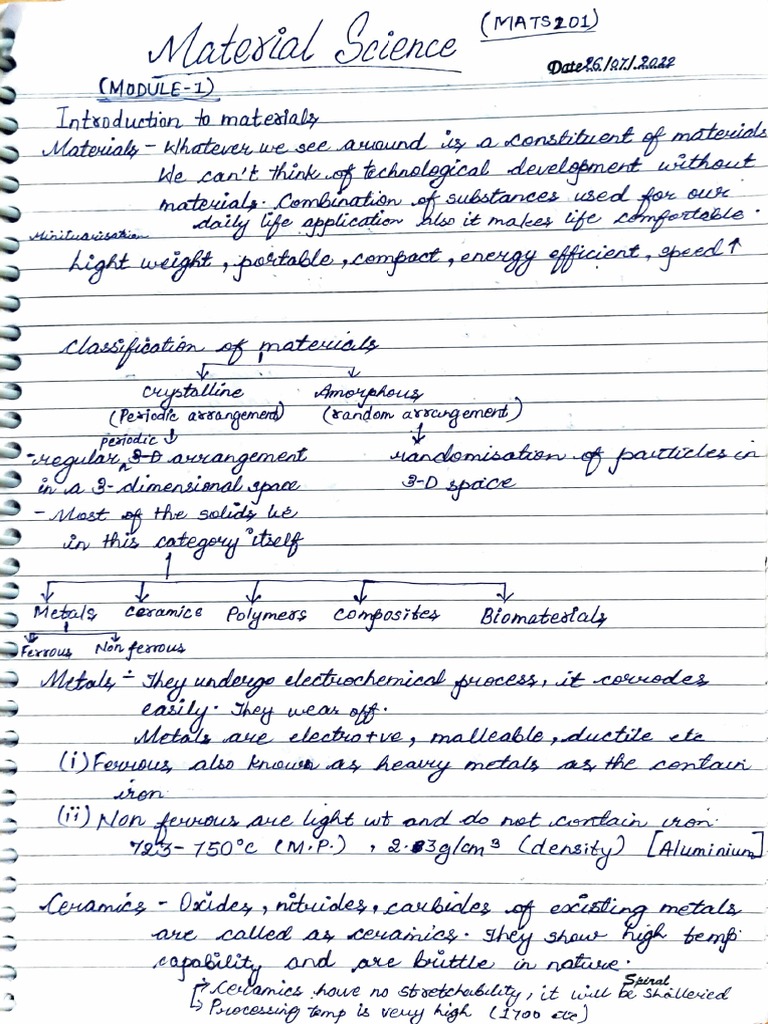 Material Science (MATS201)
Date 26/07/2022
(MODULE-1)
Introduction to materials
Materials - Whatever we see around is a constituent of materials
We can't think of technological development without
materials. Combination of substances used for our
daily life application also it makes life comfortable.
Minituarisation
Light weight, portable, compact, energy efficient, speed ↑
Classification of materials
Crystalline Amorphous
(Periodic arrangement) (random arrangement)
periodic
-regular 3-D arrangement randomisation of particles in
in a 3-dimensional space 3-D space
- Most of the solids lie
in this category itself
Metals Ceramics Polymers Composites Biomaterials
Ferrous Non ferrous
Metals - They undergo electrochemical process, it corrodes
easily. They wear off.
Metals are electro+ve, malleable, ductile etc
(i) Ferrous also known as heavy metals as the contain
iron
(ii) Non ferrous are light wt and do not contain iron.
723-750°C (M.P.), 2.3g/cm³ (density) [Aluminium]
Ceramics - Oxides, nitrides, carbides of existing metals
are called as ceramics. They show high temp
capability and are brittle in nature.
Spiral
Ceramics have no stretchability, it will be shattered
Processing temp is very high (1700 etc)